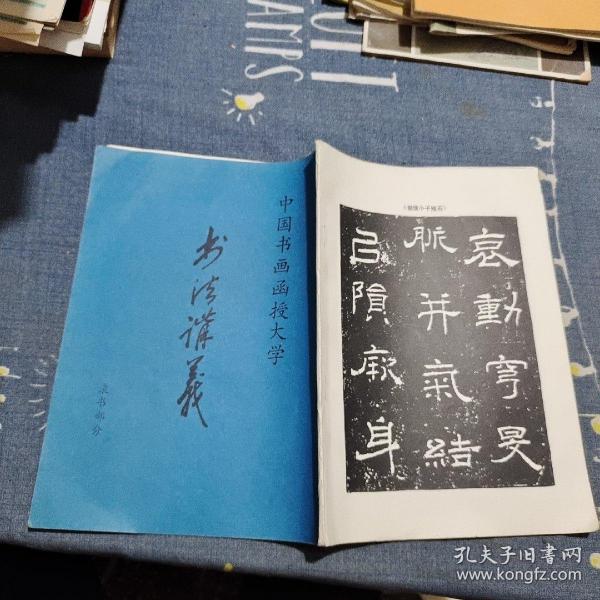 中国书画函授大学
书法讲義
隶书部分
哀動穹旻
脈并氣結
以隕厥身
孔夫子旧书网
www.kongfz.com